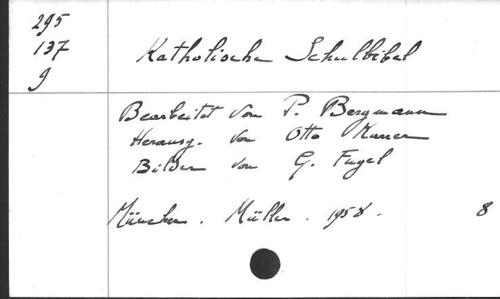 295
137
9
Katholische Schulbibel
Bearbeitet von P. Bergmann
Herausg. von Otto Karrer
Bilder von G. Fugel
München. Müller. 1958. 8